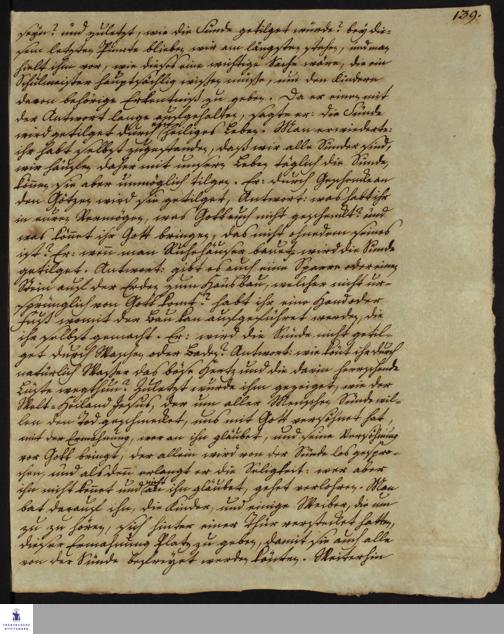 139.
seyn? und zuletzt, wie die Sünde getilget würde? bey die-
sem letzten Puncte blieben wir am längsten stehen, und man
hielt ihm vor, wie dieses eine wichtige Sache wäre, die ein
Schulmeister hauptsächlig wissen müste, um den Kindern
davon behörige Erkentniß zu geben. Da er einen mit
der Antwort lange aufgehalten, sagte er: die Sünde
wird getilget durch heiliges Leben. Man erwiederte:
ihr habt selbst zugestanden, daß wir alle Sünder sind,
wir häufen daher mit unserm Leben täglich die Sünde,
können sie aber unmöglich tilgen. Er: durch Geschenke an
den Götzen wird sie getilget, Antwort: was habt ihr
in eurem Vermögen, was Gott euch nicht geschenkt? und
was könnet ihr Gott bringen, das nicht ohnedem seines
ist? Er: wenn man Ruhehäuser bauet, wird die Sünde
getilget. Antwort: gibt es auch eine Sparre oder einen
Stein auf der Erden zum Hausbau, welcher nicht ur-
sprünglich von Gott komt? habt ihr eine Hand oder
Fuß womit der Bau kan ausgeführet werden, die
ihr selbst gemacht. Er: wird die Sünde nicht getil-
get durch Waschen oder Baden? Antwort: wie könt ihr durch
natürlich Wasser das böse Hertz und die darin herrschende
Lüste wegthun? Zuletzt wurde ihm gezeiget, wie der
Welt-Heiland Jesus, der um aller Menschen Sünde wil-
len den Tod geschmecket, uns mit Gott versöhnet hat,
mit der Ermahnung, wer an ihn gläubet, und seine Versöhnung
vor Gott bringt, der allein wird von der Sünde los gespro-
chen, und alsdenn erlangt er die Seligkeit: wer aber
ihn nicht kennet und nicht an ihn gläubet, gehet verlohren. Man
bat darauf ihn, die Kinder, und einige Weiber, die um
zu zu hören, sich hinter einer Thür versteckt hatten,
dieser Ermahnung Platz zu geben, damit sie auch alle
von der Sünde befreyet werden könten. Weiterhin
FRANCKESCHE
STIFTUNGEN